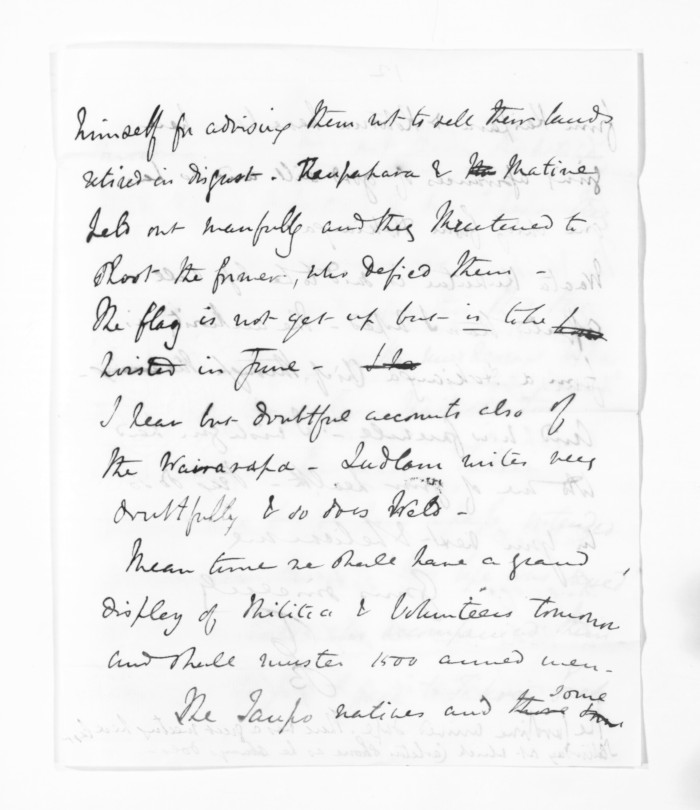 himself for advising them not to sell their lands
retired in disgust - Rauparaha & Matine
held out manfully and they threatened to
shoot the former, who defied them -
The flag is not yet up but is to be
hoisted in June -
I hear but doubtful accounts also of
the Wairarapa - Ludlam writes very
doubtfully & so does Weld -
Mean time we shall have a grand
display of Militia & Volunteers tomorrow
and shall muster 1500 armed men -
The Taupo natives and some